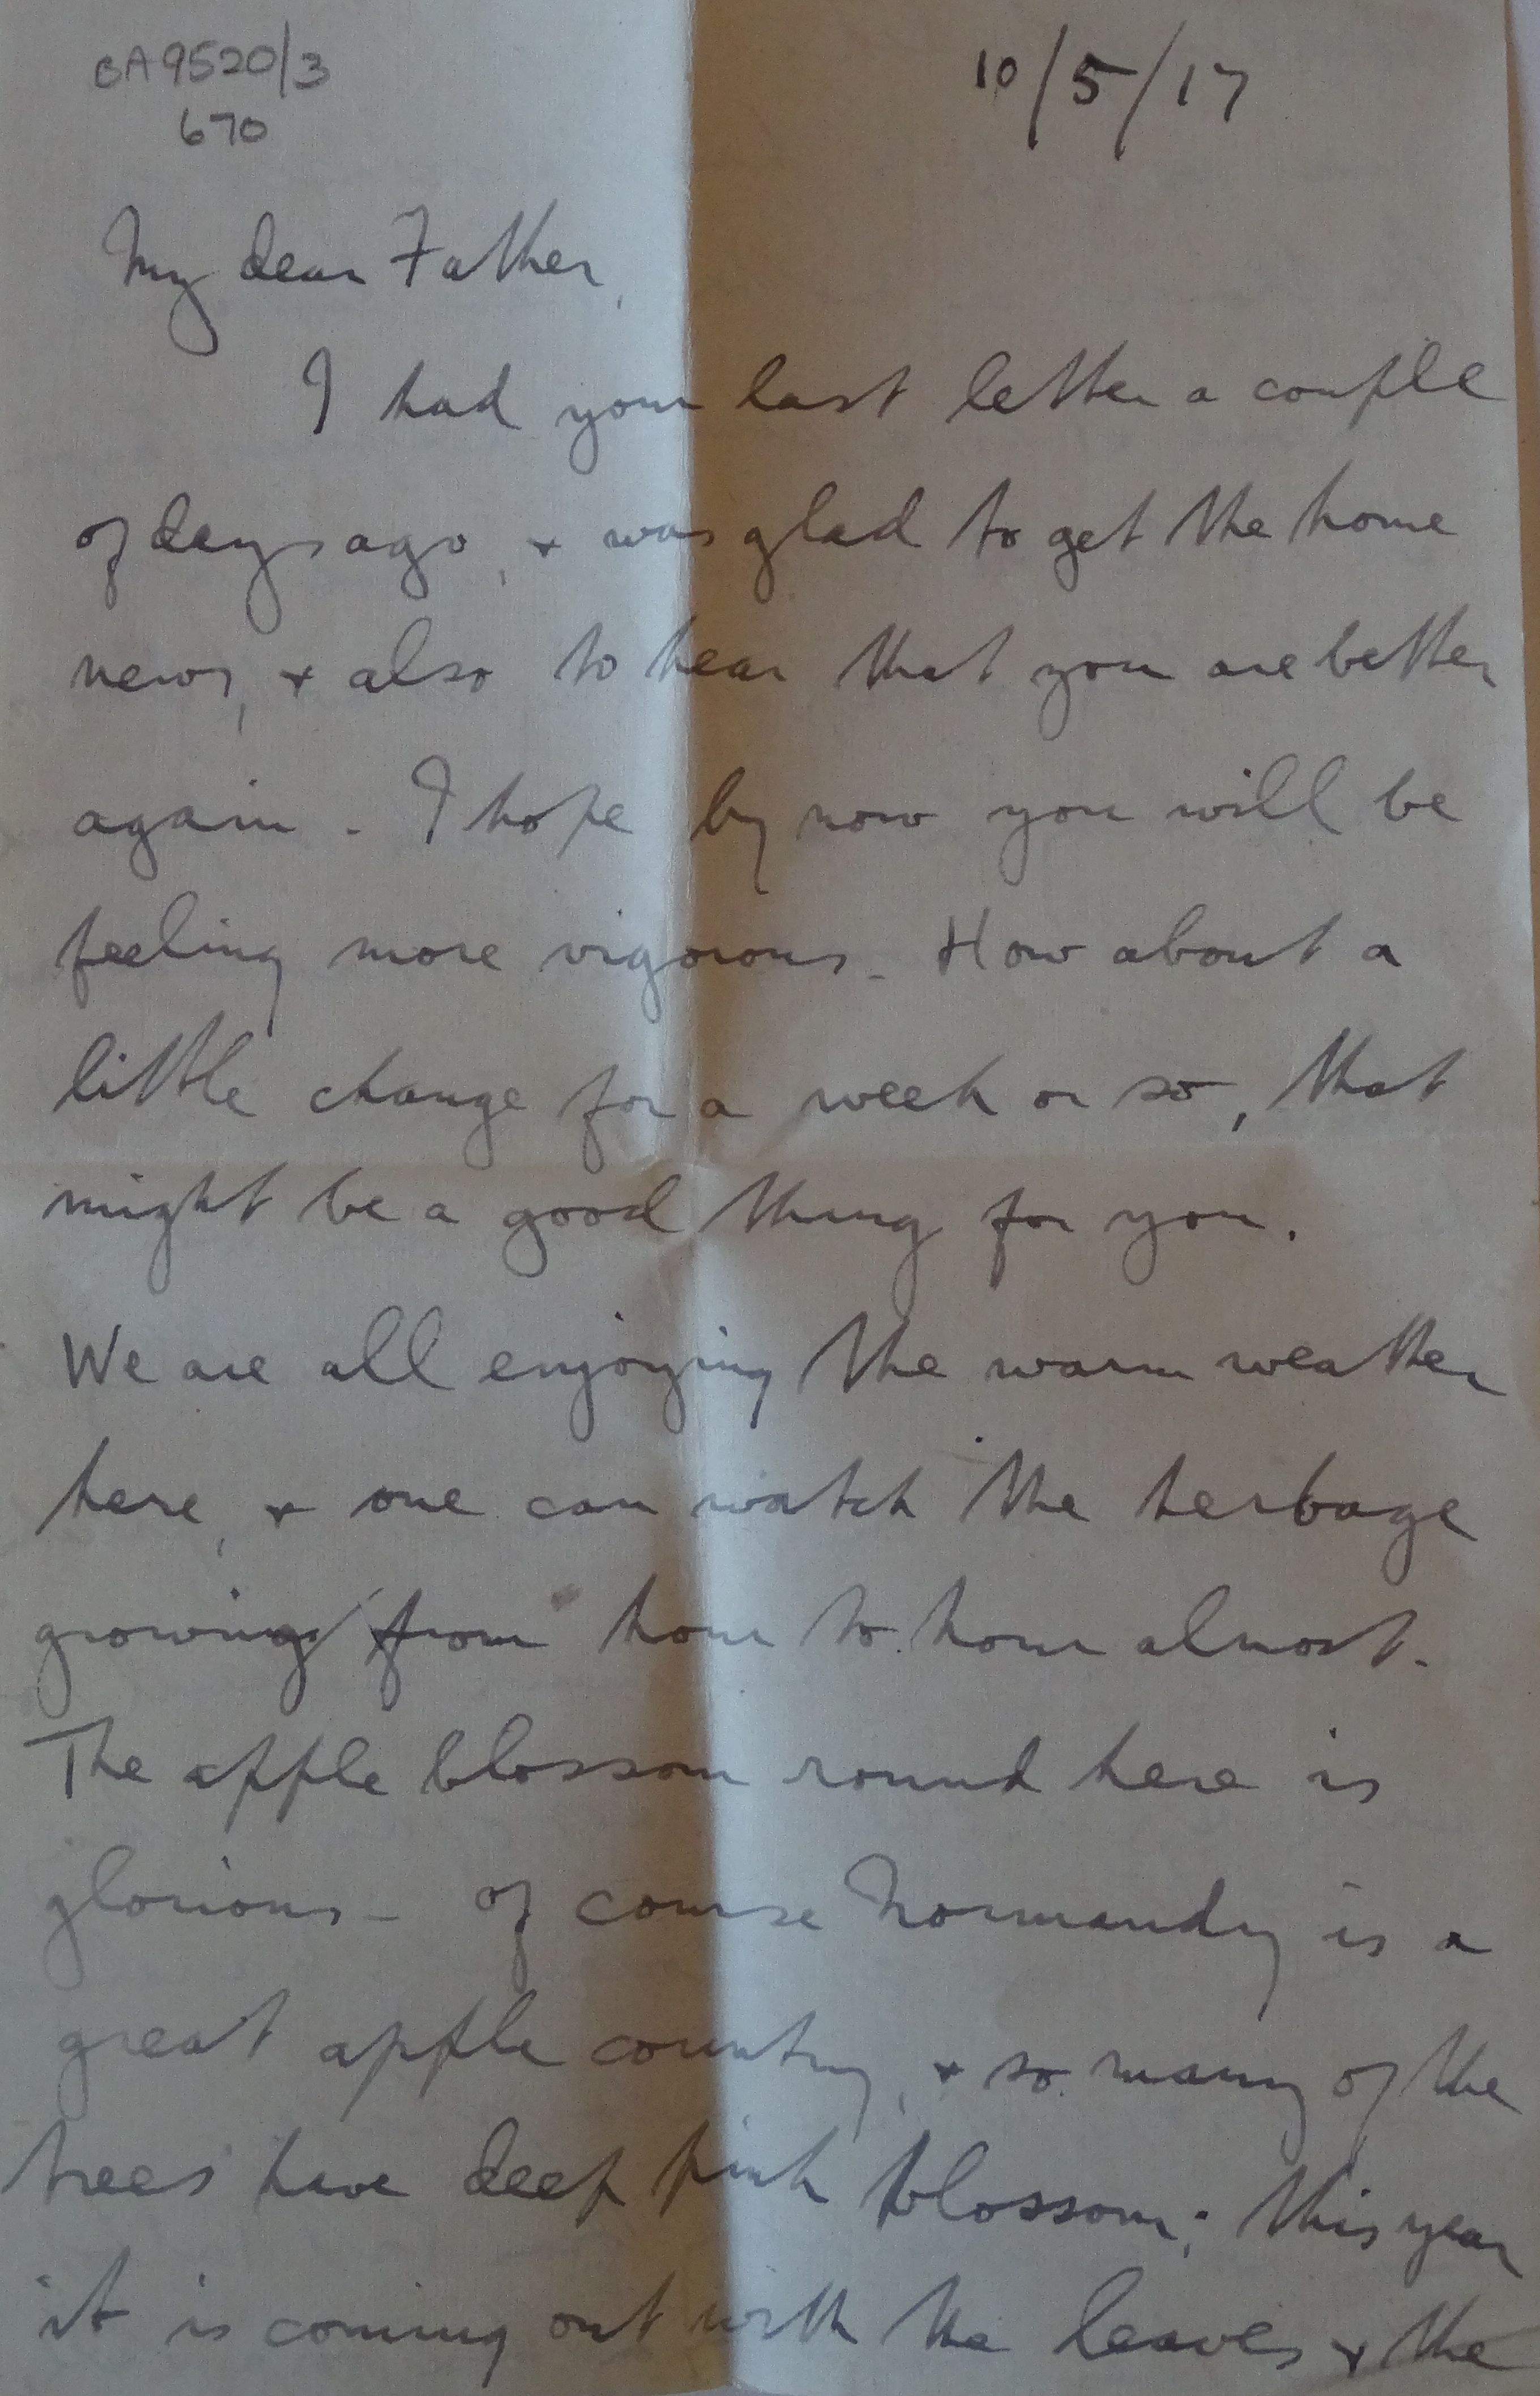 BA9520/3
670
10/5/17
My dear Father,
I had your last letter a couple
of days ago, + was glad to get the home
news, + also to hear that you are better
again - I hope by now you will be
feeling more vigorous - How about a
little change for a week or so, that
might be a good thing for you.
We are all enjoying the warm weather
here, + one can watch the herbage
growing from hour to hour almost.
The apple blossom round here is
glorious - of course Normandy is a
great apple country, + so many of the
trees have deep pink blossom; this year
it is coming out with the leaves + the